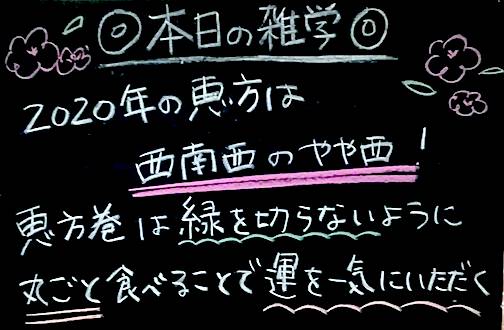 ◎本日の雑学◎
2020年の恵方は
西南西のやや西！
恵方巻は縁を切らないように
丸ごと食べることで運を一気にいただく